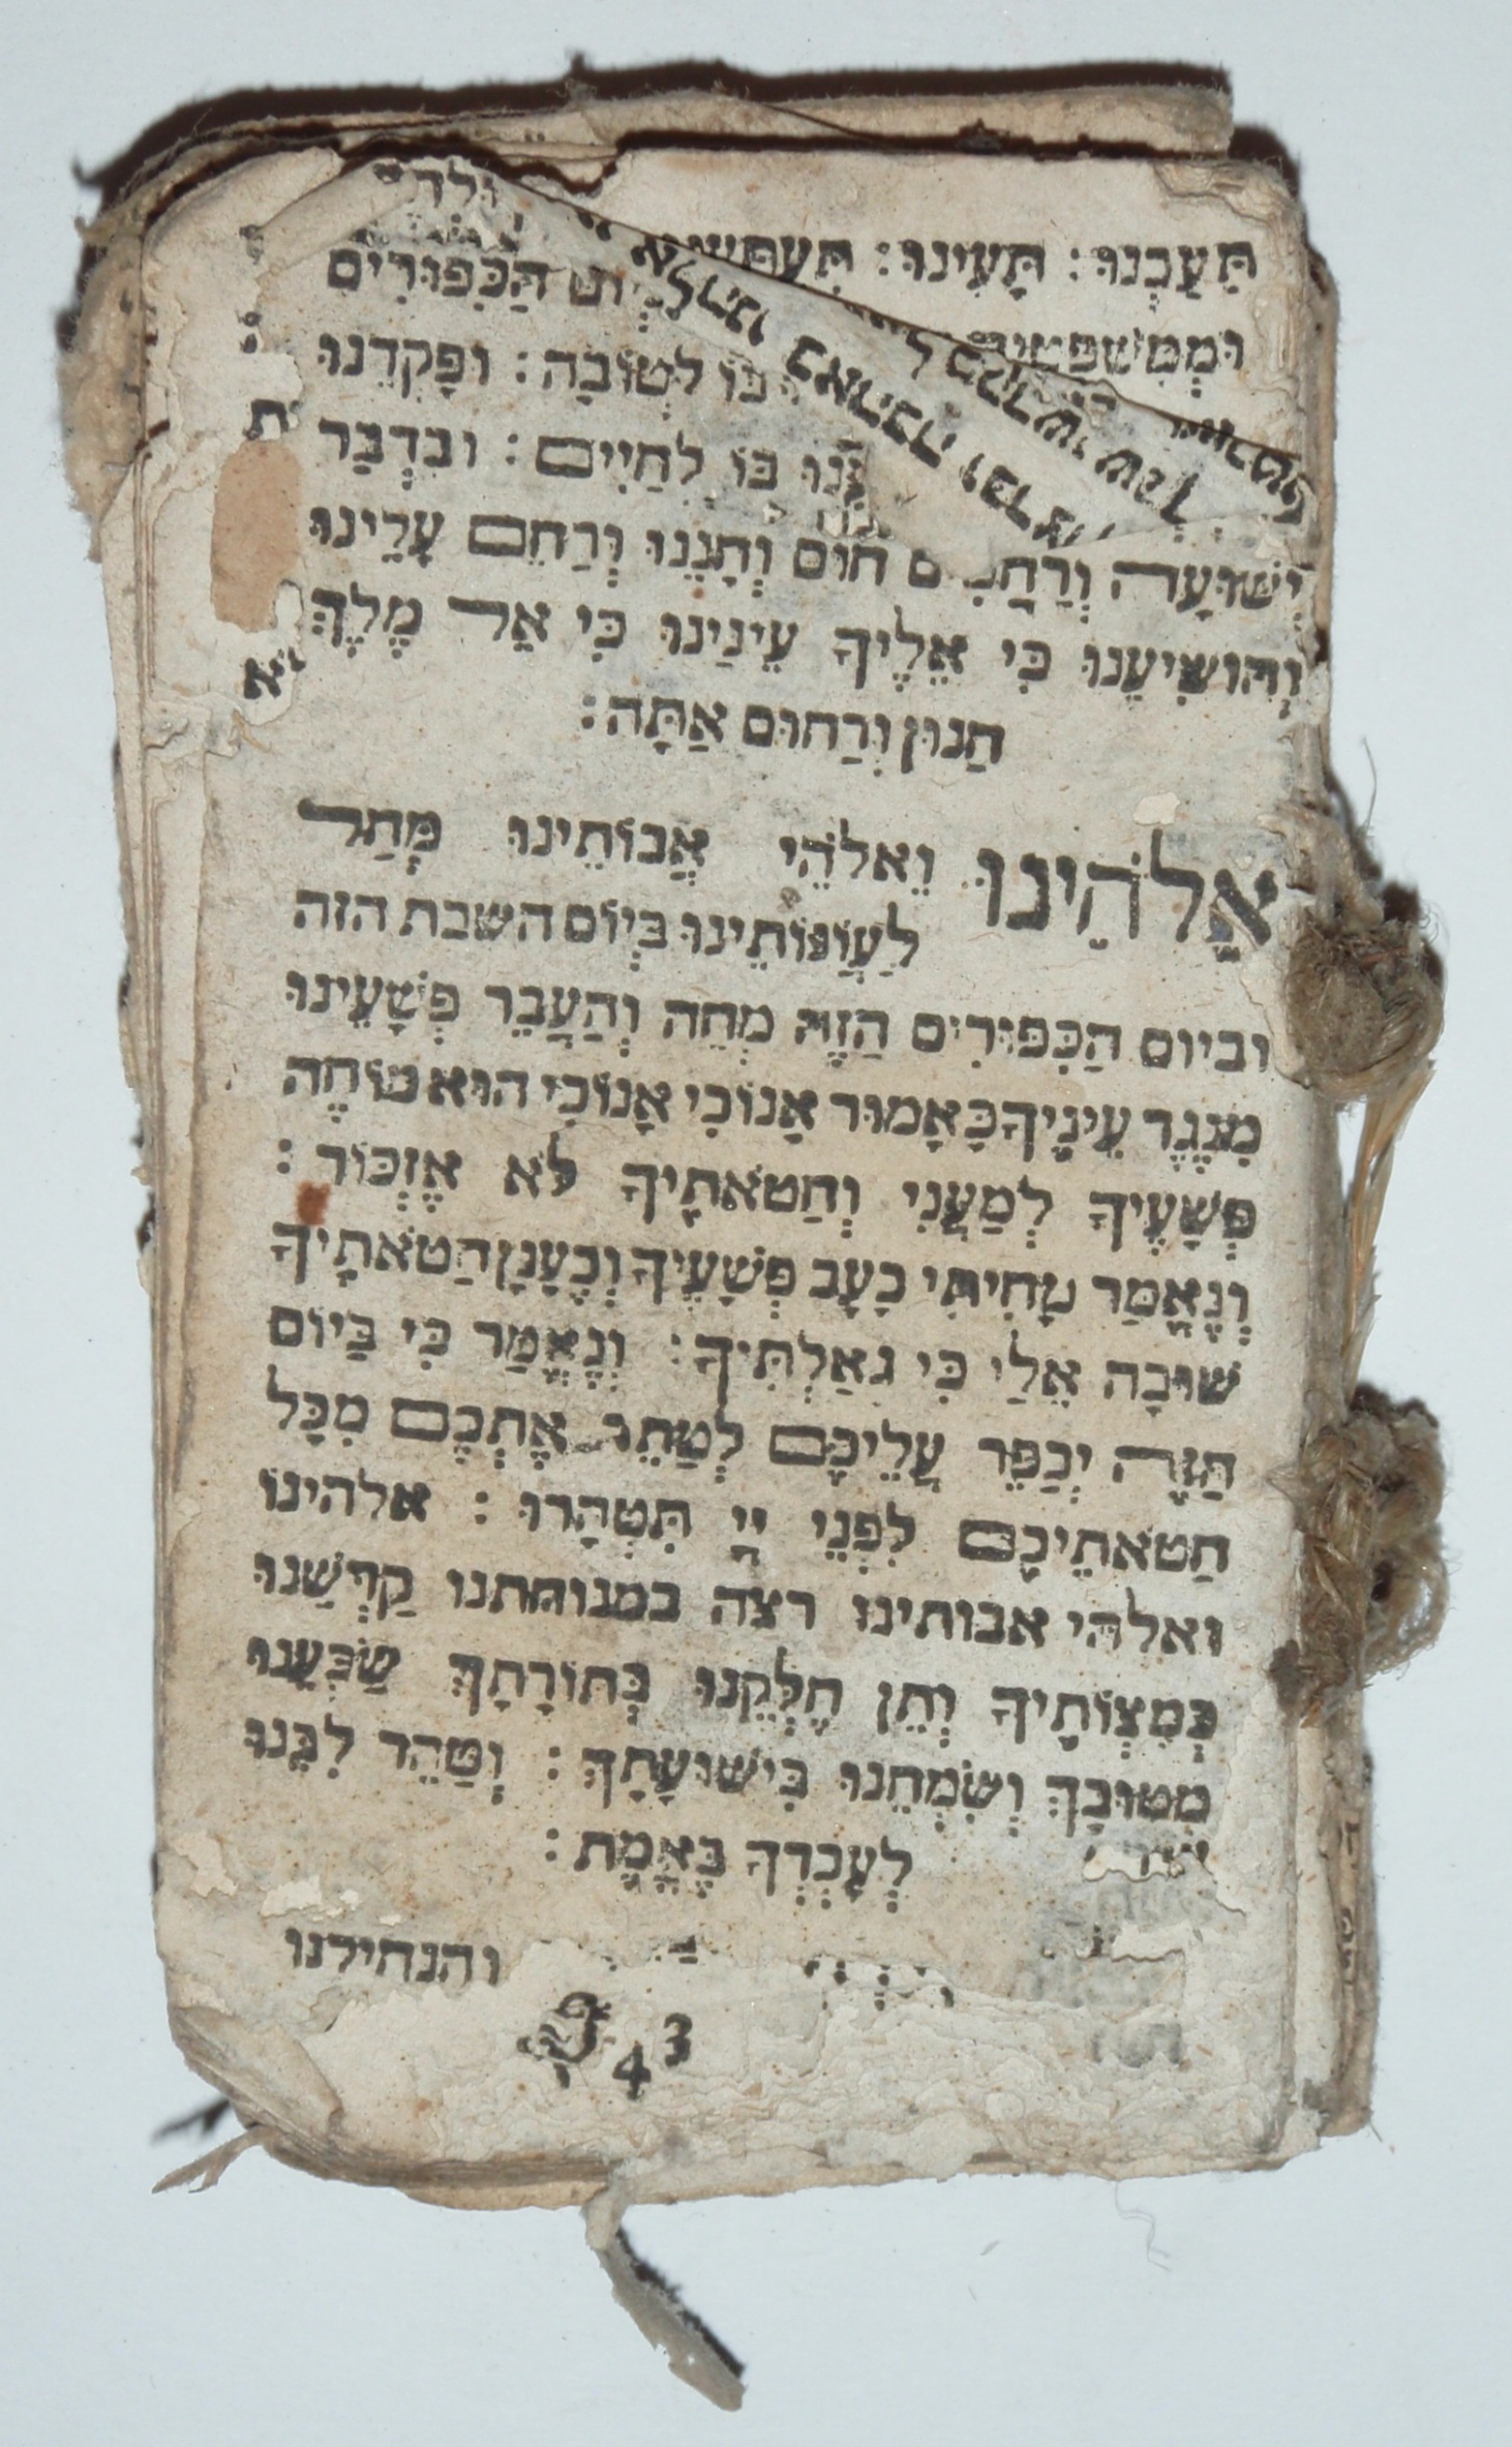 תִּעַבְנוּ: תָּעִינוּ:
הַכִּפּוּרִים
בּוֹ לְטוֹבָה: וּפָקְדֵנוּ
בּוֹ לְחַיִּים: וּבִדְבַר
יְשׁוּעָה וְרַחֲמִים חוּס וְחָנֵּנוּ וְרַחֵם עָלֵינוּ
וְהוֹשִׁיעֵנוּ כִּי אֵלֶיךָ עֵינֵינוּ כִּי אֵל מֶלֶךְ
חַנּוּן וְרַחוּם אַתָּה:
אֱלֹהֵינוּ וֵאלֹהֵי אֲבוֹתֵינוּ מְחַל
לַעֲוֹנוֹתֵינוּ בְּיוֹם השבת הזה
וביום הַכִּפּוּרִים הַזֶּה מְחֵה וְהַעֲבֵר פְּשָׁעֵינוּ
מִנֶּגֶד עֵינֶיךָ כָּאָמוּר אָנוֹכִי אָנוֹכִי הוּא מוֹחֶה
פְּשָׁעֶיךָ לְמַעֲנִי וְחַטֹּאתֶיךָ לֹא אֶזְכּוֹר:
וְנֶאֱמַר מָחִיתִי כָעָב פְּשָׁעֶיךָ וְכֶעָנָן חַטֹּאתֶיךָ
שׁוּבָה אֵלַי כִּי גְאַלְתִּיךָ: וְנֶאֱמַר כִּי בַיּוֹם
הַזֶּה יְכַפֵּר עֲלֵיכֶם לְטַהֵר אֶתְכֶם מִכָּל
חַטֹּאתֵיכֶם לִפְנֵי יְיָ תִּטְהָרוּ: אלהינו
ואלהי אבותינו רצה במנוחתנו קַדְּשֵׁנוּ
בְּמִצְוֹתֶיךָ וְתֵן חֶלְקֵנוּ בְּתוֹרָתֶךָ שַׂבְּעֵנוּ
מִטּוּבָךְ וְשַׂמְּחֵנוּ בִּישׁוּעָתֶךָ: וְטַהֵר לִבֵּנוּ
לְעָבְדְּךָ בֶּאֱמֶת:
והנחילנו
43